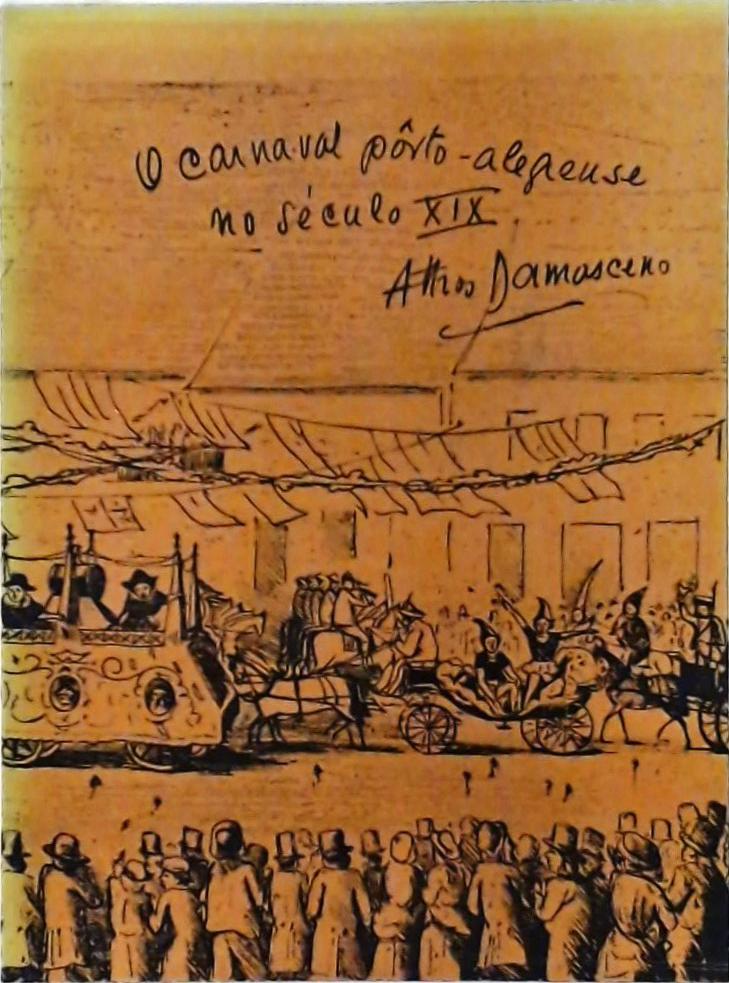 O carnaval pôrto-alegrense
no século XIX
Athos Damasceno